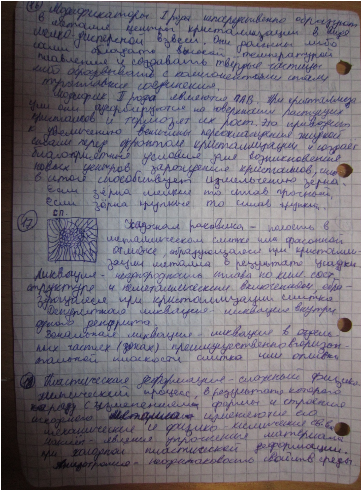 16 Модификаторы I рода непосредственно образуют
в металле центры кристаллизации в виде
мелко дисперсной взвеси. Они должны либо
сами обладать высокой температурой
плавления и создавать твердые частицы
либо образовывать с компонентами сплава
тугоплавкие соединения.
II рода являются ПАВ. При кристаллиза
ции они адсорбируются на поверхности растущих
кристаллов и тормозят их рост. Это приводит
к увеличению величины переохлаждения жидкой
перед фронтом кристаллизации и создает
благоприятные условия для возникновения
новых центров зарождения кристаллов, что
в итоге способствует измельчению зерна.
Если зёрна мелкие то сплав прочный,
если зёрна крупные то сплав хрупкий.
17 СП
Усадочная раковина - полость в
металлическом слитке или фасонной
отливке образующаяся при кристаллиза
ции металла в результате усадки
Ликвация - неоднородность сплава по хим. сост,
структуре и неметаллическим включениям обра
зующаяся при кристаллизации слитка
Дендритная ликвация - ликвация внутри
одного дендрита.
Зональная ликвация - ликвация в отдель
ных частях (зонах) преимущественно
плоскости слитка или отливки
18 Пластическая деформация - сложный физико
химический процесс, в результате которого
наряду с изменением формы и строения
исходного металла изменяются его
механические и физико-химические св-ва
Наклёп - явление упрочнения материала
при холодной пластической деформации.
Анизотропия - неодинаковость свойств среды